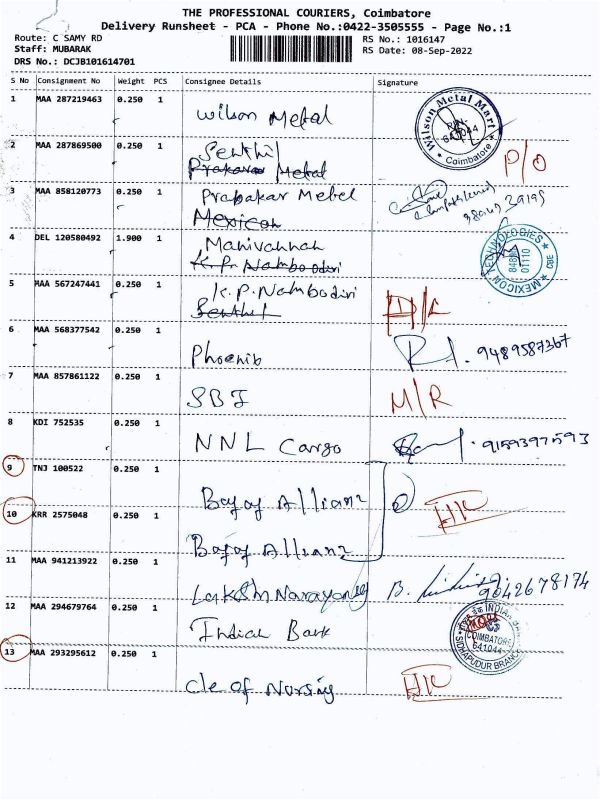 THE PROFESSIONAL COURIERS, Coimbatore
Delivery Runsheet - PCA - Phone No.:0422-3505555 - Page No.:1
Route: C SAMY RD RS No.: 1016147
Staff: MUBARAK RS Date: 08-Sep-2022
DRS No.: DCJB101614701
S No Consignment No Weight PCS Consignee Details Signature
1 MAA 287219463 0.250 1 Wilson Metal
Wilson Metal Mart
641044
Coimbatore
2 MAA 287869500 0.250 1 Senthil
Prakaras Metal P/O
3 MAA 858120773 0.250 1 Prabakar Metel
Mexican
4 DEL 120580492 1.900 1 Manivannan
K.P. Namboodiri
MEXICON TECHNOLOGIES
CBE
5 MAA 567247441 0.250 1 K.P. Nambodiri D/L
Senthil
6 MAA 568377542 0.250 1 Phoenib 9489587367
7 MAA 857861122 0.250 1 SBI M/R
8 KDI 752535 0.250 1 NNL Cargo 9159397593
9 TNJ 100522 0.250 1 Bajaj Allianz
10 KRR 2575048 0.250 1 Bajaj Allianz
11 MAA 941213922 0.250 1 9042678174
12 MAA 294679764 0.250 1 Indian Bank
COIMBATORE
641044
SIDHAPUDUR BRANCH
13 MAA 293295612 0.250 1 Cle of Nursing